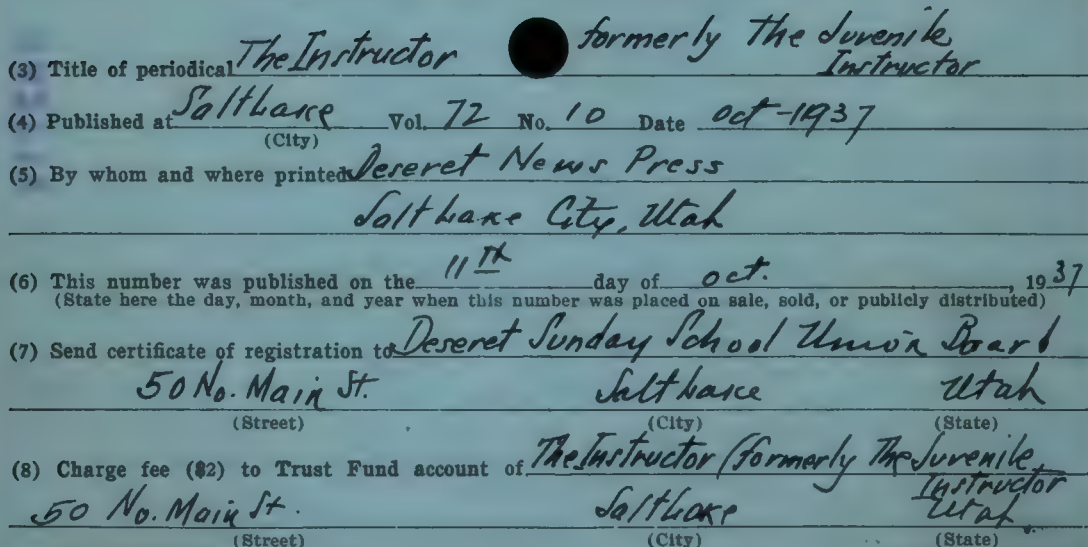 (3) Title of periodical The Instructor formerly The Juvenile
Instructor
(4) Published at Salt Lake Vol. 72 No. 10 Date Oct-1937
(City)
(5) By whom and where printed Deseret News Press
Salt Lake City, Utah
(6) This number was published on the 11th day of Oct. , 1937
(State here the day, month, and year when this number was placed on sale, sold, or publicly distributed)
(7) Send certificate of registration to Deseret Sunday School Union Board
50 No. Main St. Salt Lake Utah
(Street) (City) (State)
(8) Charge fee ($2) to Trust Fund account of The Instructor (formerly The Juvenile
Instructor
50 No. Main St. Salt Lake Utah.
(Street) (City) (State)